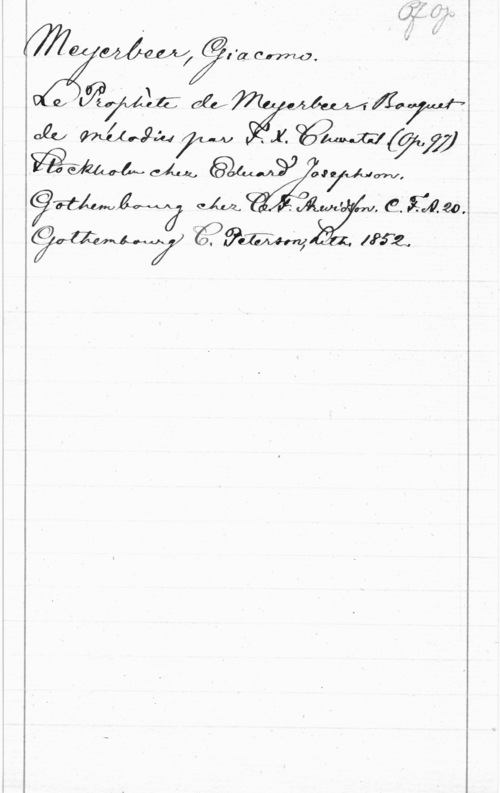 Pf Op
Meyerbeer, Giacomo.
Le Prophète de Meyerbeer, Bouquet
de mélodies par F. X. Chwatal (Op. 97)
Stockholm chez Eduard Josephson.
Gothembourg chez C. F. Arwidsson. C. F. A. 20.
Gothembourg C. Peterson, Lith. 1852.